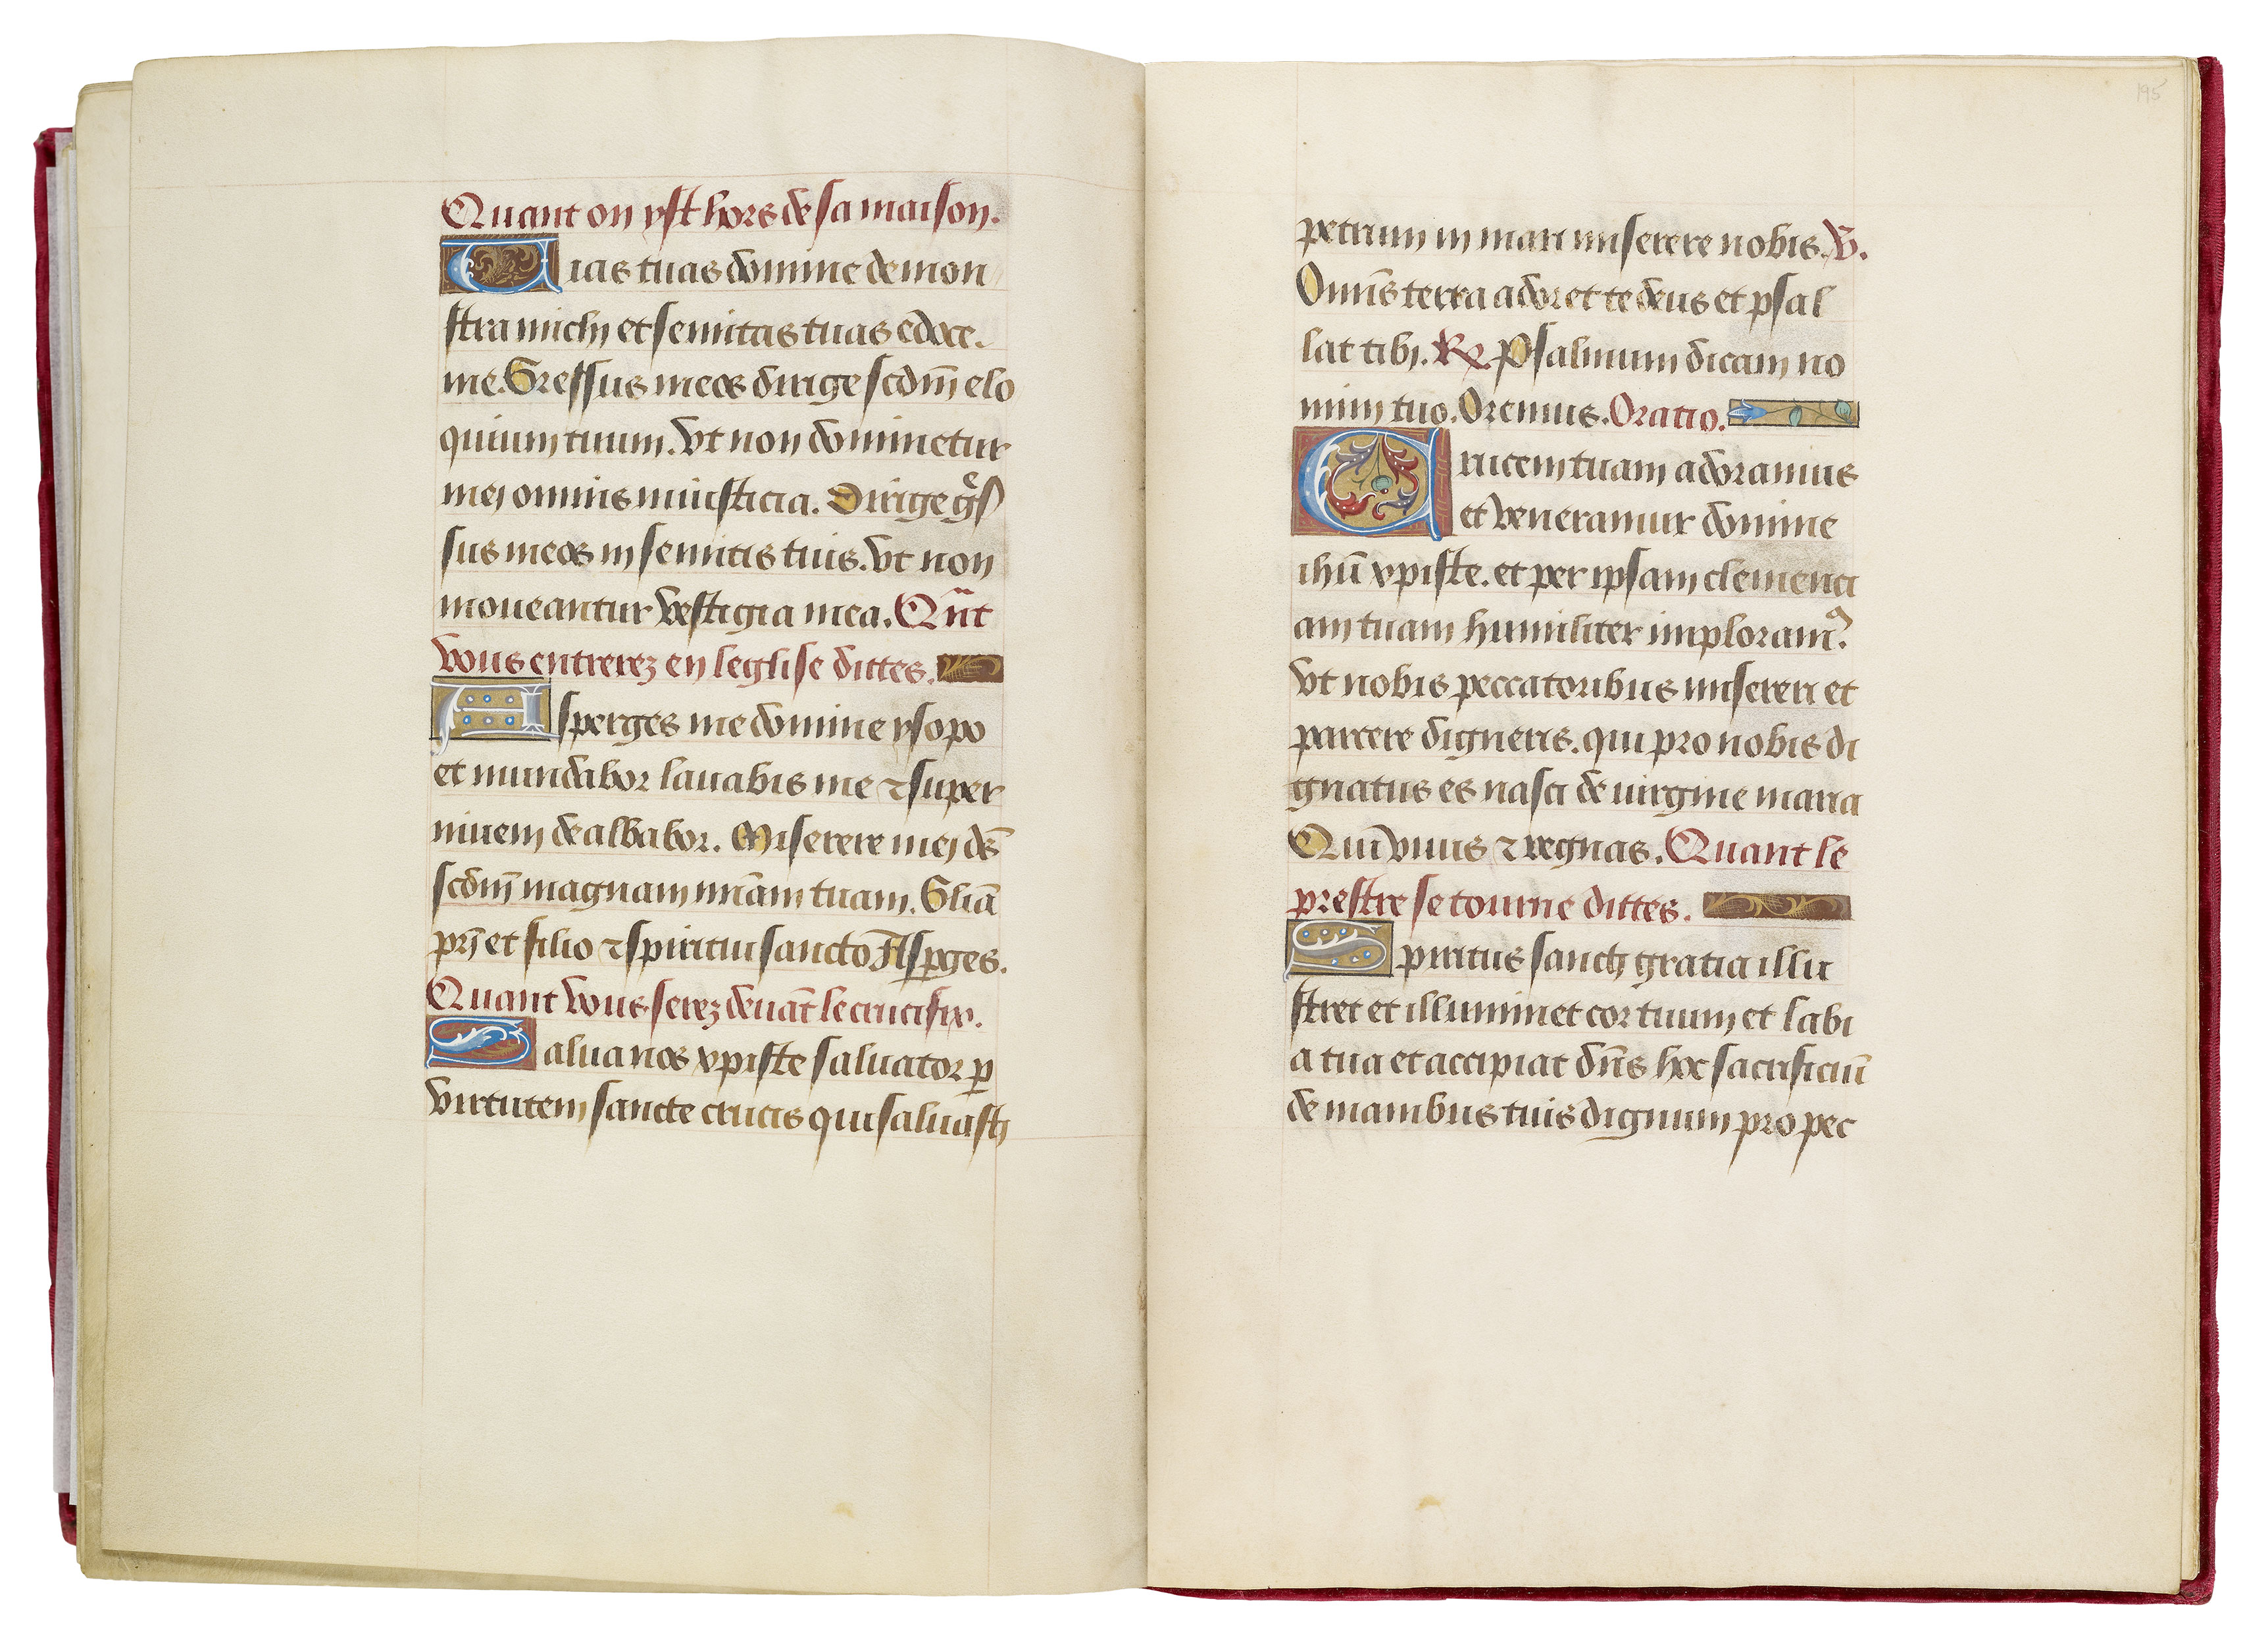 Quant on yst hors de sa maison.
Vias tuas domine demon
stra michj et semitas tuas edoce.
me. Gressus meos dirige scdm̄ elo
quium tuum. Vt non dominetur
mej omnis iniusticia. Dirige gͤs
sus meos in semitis tuis. Vt non
moueantur vestigia mea. Qñt
vous entrerez en leglise dittes.
Asperges me domine ysopo
et mundabor lauabis me ⁊ super
niuem dealbabor. Miserere mej ds̄
scdm̄ magnam miām tuam. Gliā
pr̄j et filio ⁊ spiritui sancto Asꝑges.
Quant vous serez deuāt le crucifix.
Salua nos xpiste saluator ꝑ
virtutem sancte crucis qui saluastj
195
petrum in mari miserere nobis. V̸.
Omīs terra adoret te deus et psal
lat tibj. R̸ Psalmum dicam no
minj tuo. Oremus. Oratio.
Crucem tuam adoramus
et veneramur domine
ihū xpiste. et per ipsam clemenci
am tuam humiliter imploramꝰ.
Vt nobis peccatoribus misereri et
parcere digneris. qui pro nobis di
gnatus es nasci de uirgine maria
Qui viuis ⁊ regnas. Quant le
prestre se tourne dittes.
Spiritus sanctj gratia illu
stret et illuminet cor tuum et labi
a tua et accipiat dñs hoc sacrificiū
de manibus tuis dignum pro pec